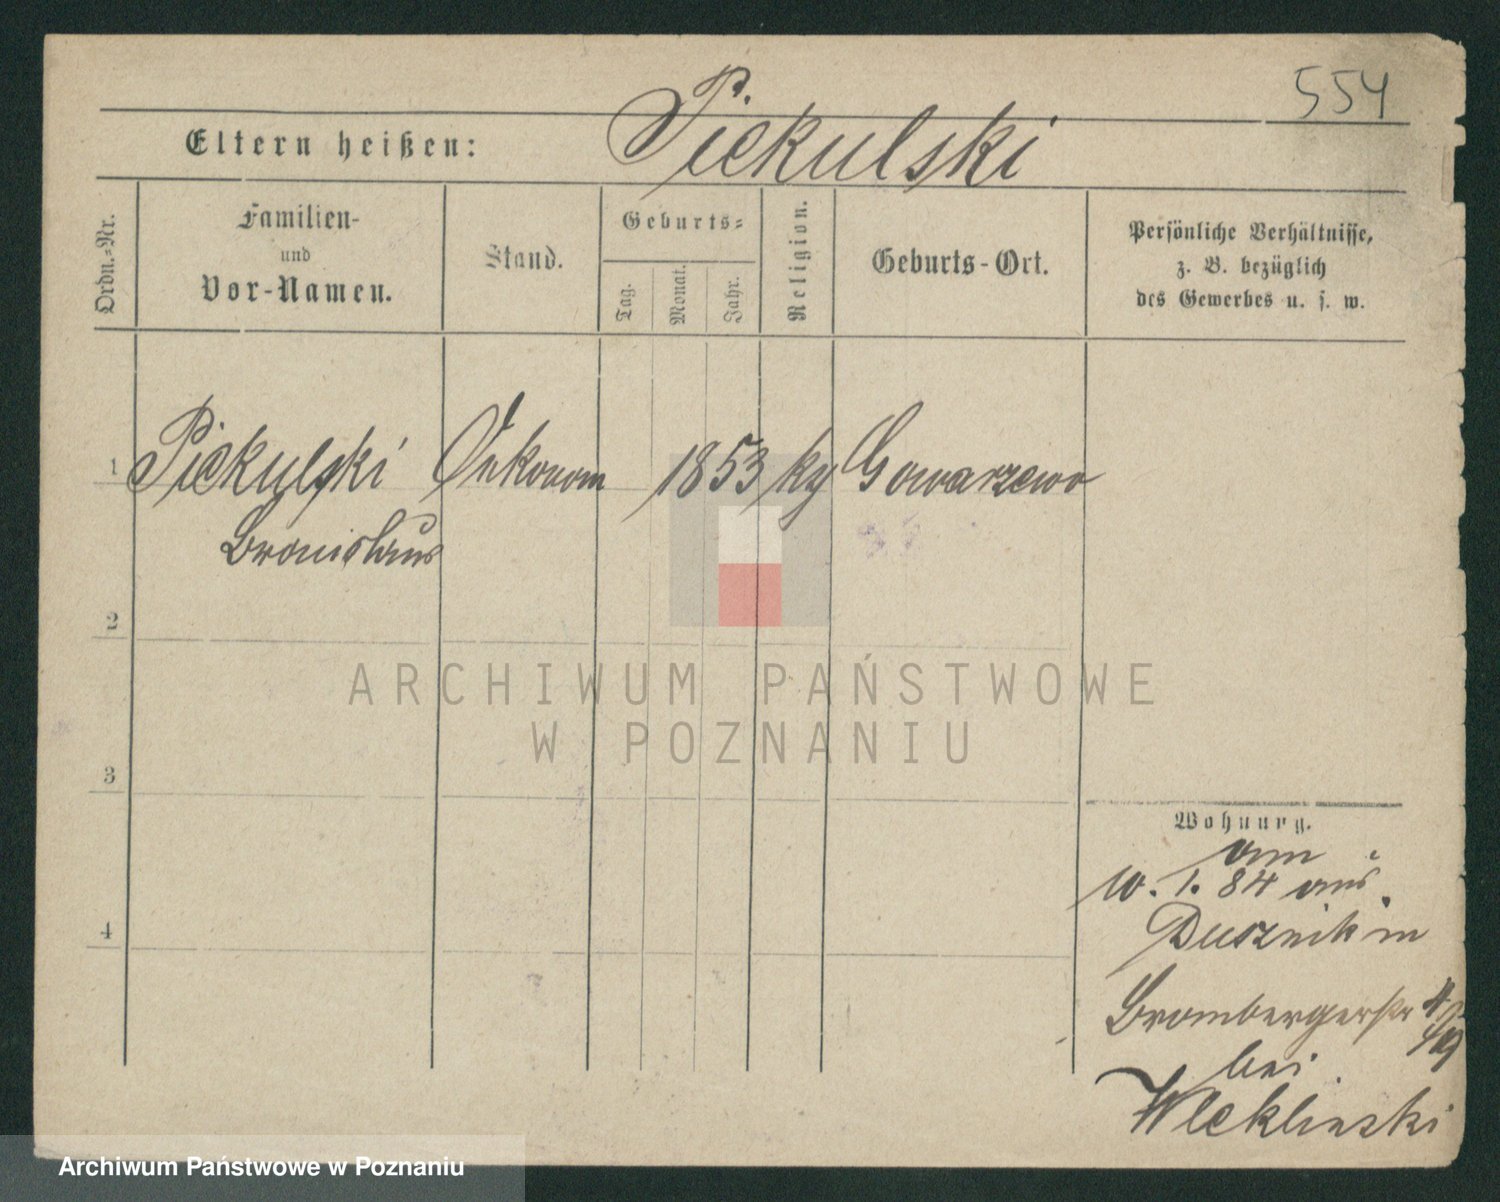 554
Eltern heißen: Piekulski
Ordn.=Nr.
Familien-
und
Vor-Namen.
Stand.
Geburts=
Tag.
Monat.
Jahr.
Religion.
Geburts-Ort.
Persönliche Verhältnisse,
z. B. bezüglich
des Gewerbes u. s. w.
1 Piekulski Oekonom 1853 kg Gowarzewo
Bronislaus
2
3
4
Wohnung.
am
10. 1. 84 aus
Dusznik in
Brombergerstr 4
bei
Wleklinski
ARCHIWUM PAŃSTWOWE
W POZNANIU
Archiwum Państwowe w Poznaniu